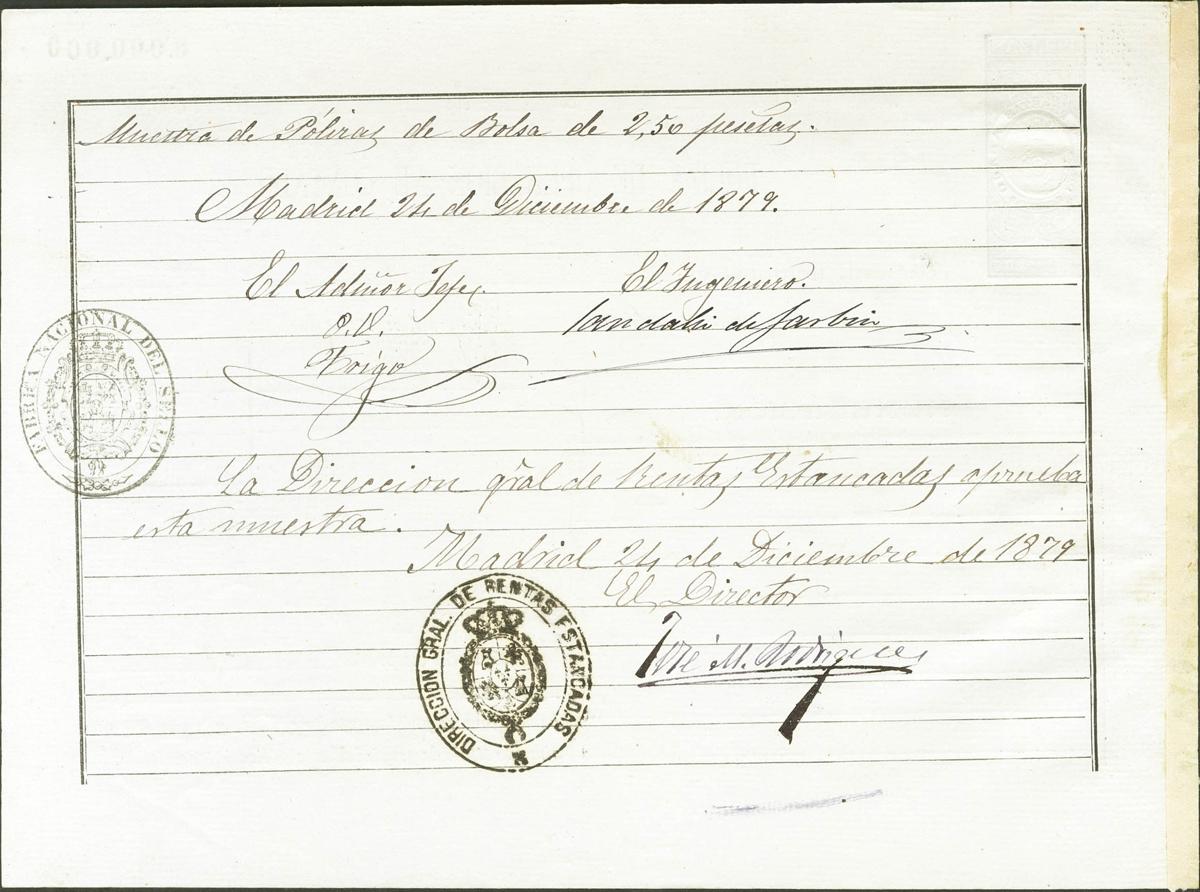 0.000.000
Muestra de Pólizas de Bolsa de 2,50 pesetas.
Madrid 24 de Diciembre de 1879.
El Admõr Jefe, El Ingeniero.
P.O.
Trigo
FABRICA NACIONAL DEL SELLO
La Direccion gral de Rentas Estancadas aprueba
esta muestra.
Madrid 24 de Diciembre de 1879
El Director
José M. Rodriguez
DIRECCION GRAL. DE RENTAS ESTANCADAS